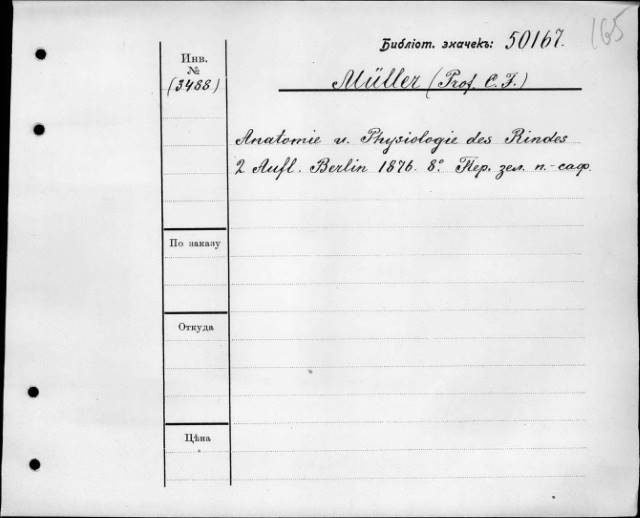 165
Библіот. значекъ: 50167.
Инв.
№
(3488)
Müller (Prof. C. F.)
Anatomie u. Physiologie des Rindes
2 Aufl. Berlin 1876. 8° Пер. зел. п.-саф.
По заказу
Откуда
Цѣна